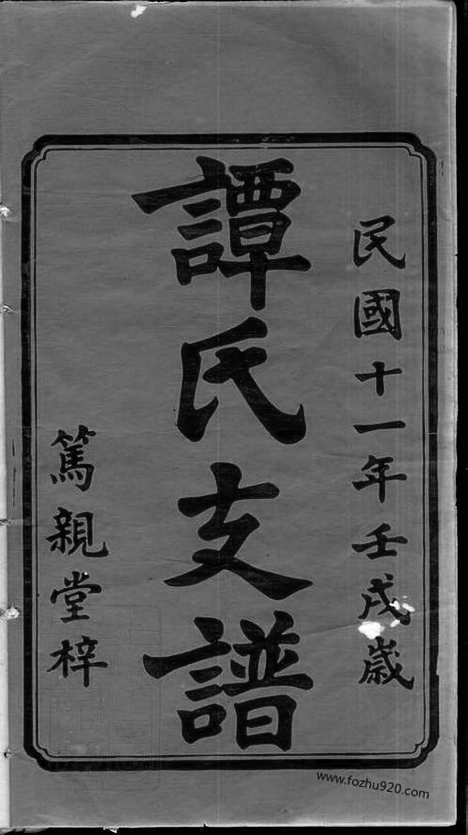 民國十一年壬戌歲
譚氏支譜
篤親堂梓
www.fozhu920.com